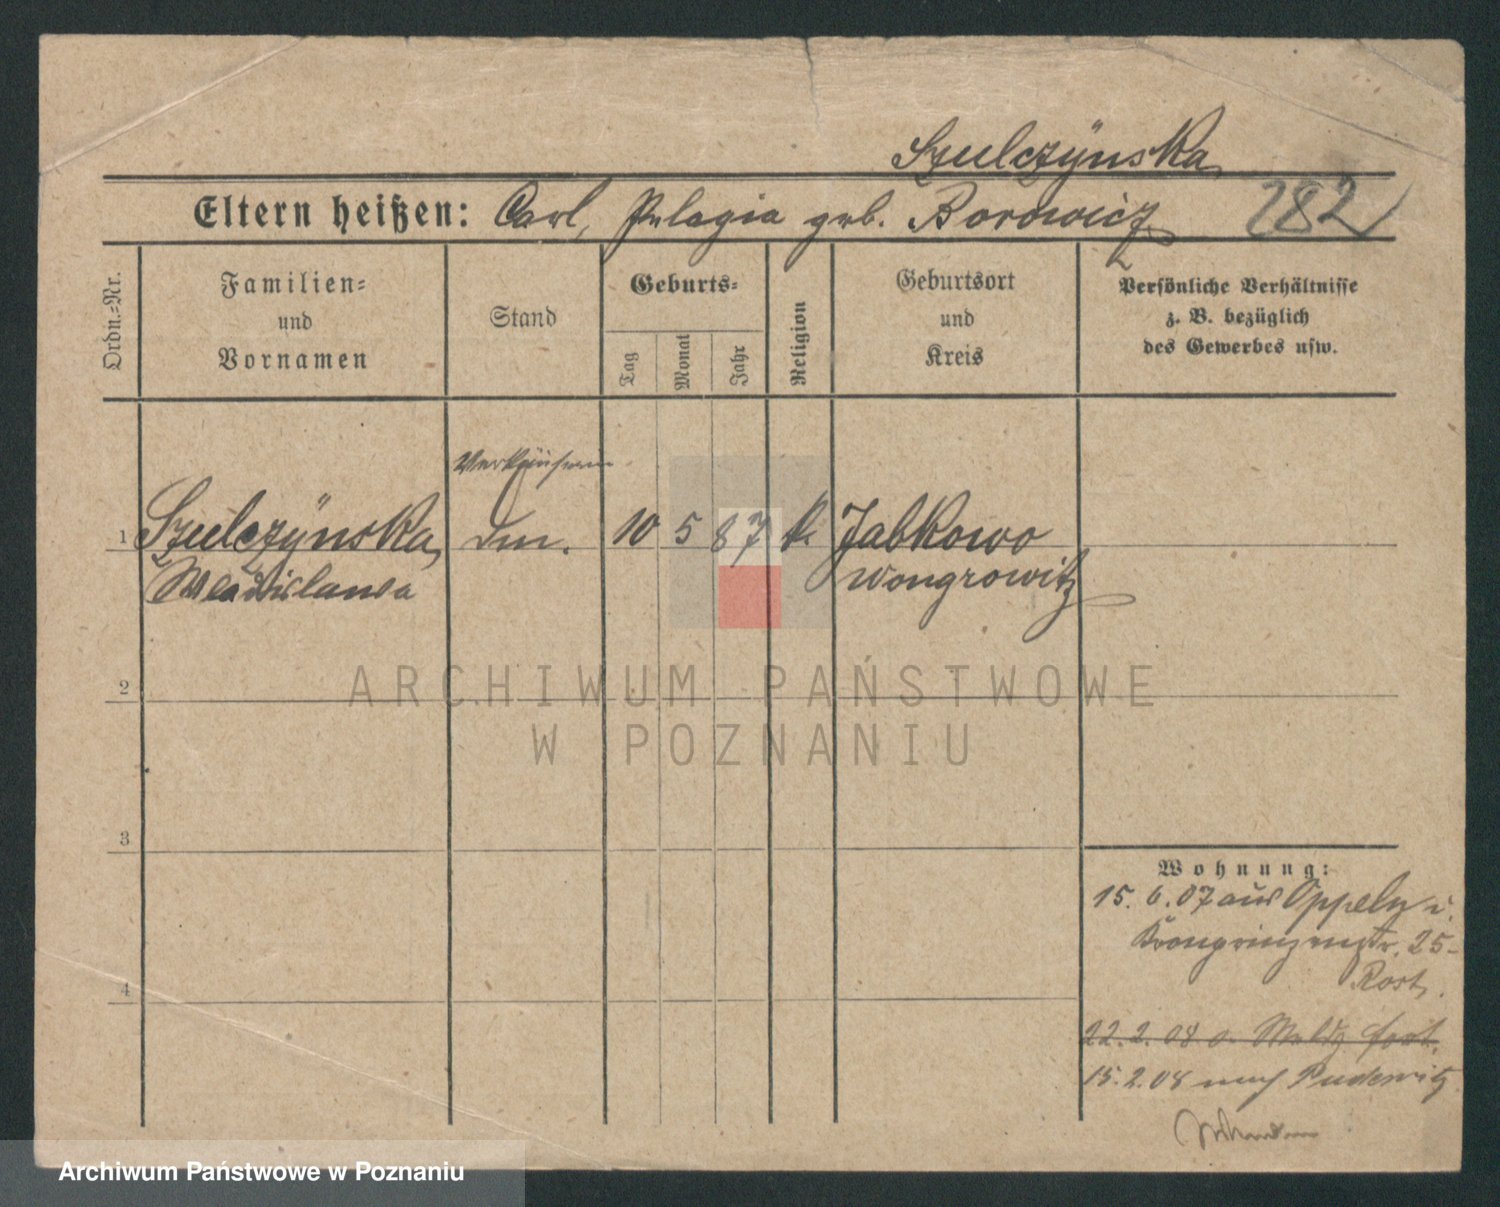 Szulczÿnska,
Eltern heißen: Carl, Pelagia geb. Borowicz
282
Ordn.=Nr.
Familien=
und
Vornamen
Stand
Geburts=
Tag
Monat
Jahr
Religion
Geburtsort
und
Kreis
Persönliche Verhältnisse
z. B. bezüglich
des Gewerbes usw.
Verkäuferin
1 Szulczÿnska, 10 5 87 k. Jabkowo
Wladislawa Wongrowitz
2
3
4
Wohnung:
15. 6. 07 aus Oppeln
Kronprinzenstr. 25
Rost.
22. 2. 08 o. Meldg fort.
15. 2. 08 nach Pudewitz
ARCHIWUM PAŃSTWOWE
W POZNANIU
Archiwum Państwowe w Poznaniu